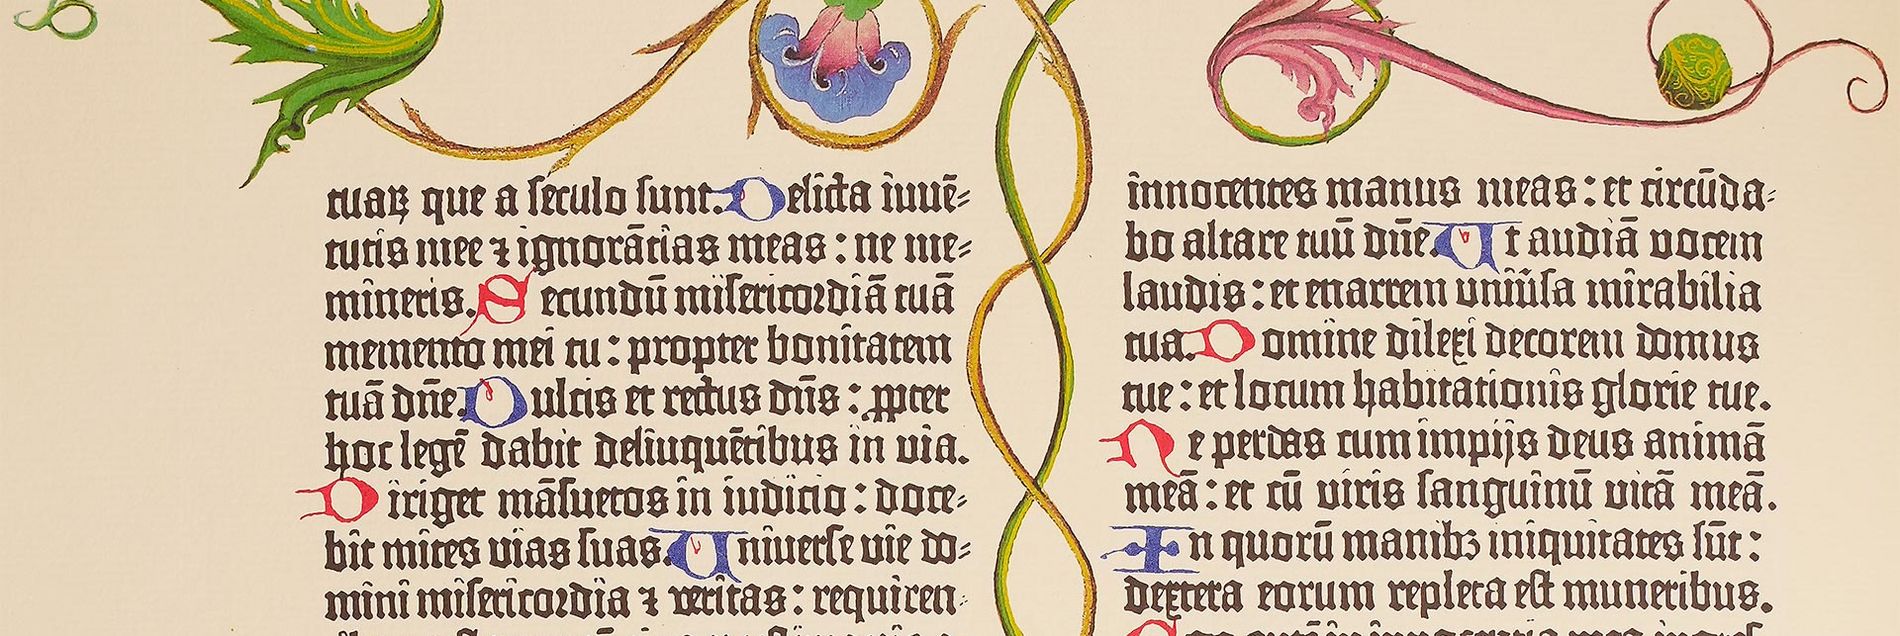 tuaꝝ que a seculo sunt. Delicta iuuē-
tutis mee ⁊ ignorātias meas : ne me-
mineris. Secundū misericordiā tuā
memento mei tu : propter bonitatem
tuā dñe. Dulcis et rectus dñs : ꝓpter
hoc legē dabit delinquētibus in via.
Diriget māsuetos in iudicio : doce-
bit mites vias suas. Uniuerse vie do-
mini misericordia ⁊ veritas : requiren-
innocentes manus meas : et circūda-
bo altare tuū dñe. Ut audiā vocem
laudis : et enarrem uniūsa mirabilia
tua. Domine dilexi decorem domus
tue : et locum habitationis glorie tue.
Ne perdas cum impijs deus animā
meā : et cū viris sanguinū vitā meā.
In quorū manibꝫ iniquitates sūt :
dextera eorum repleta est muneribus.